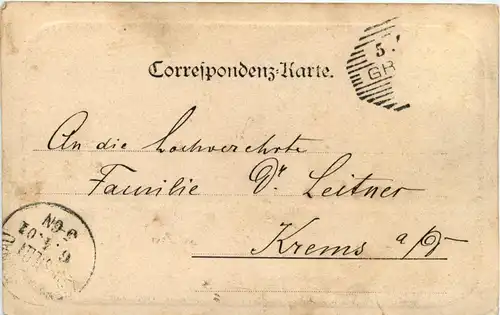 5.
GR
Correspondenz-Karte.
An die hochverehrte
Familie Dr Leitner
Krems a/D